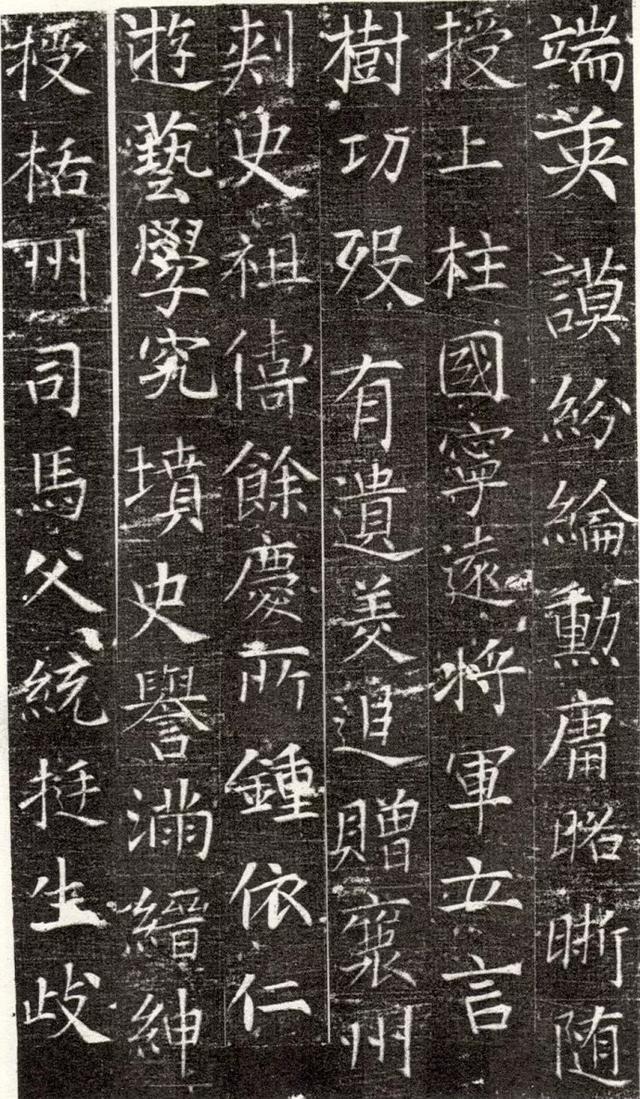 端英謨紛綸勳庸昭晣随
授上柱國寧遠将軍立言
樹功歿有遺美追贈襄州
刾史祖儔餘慶所鍾依仁
遊藝學究墳史譽滿縉紳
授栝州司馬父統挺生歧